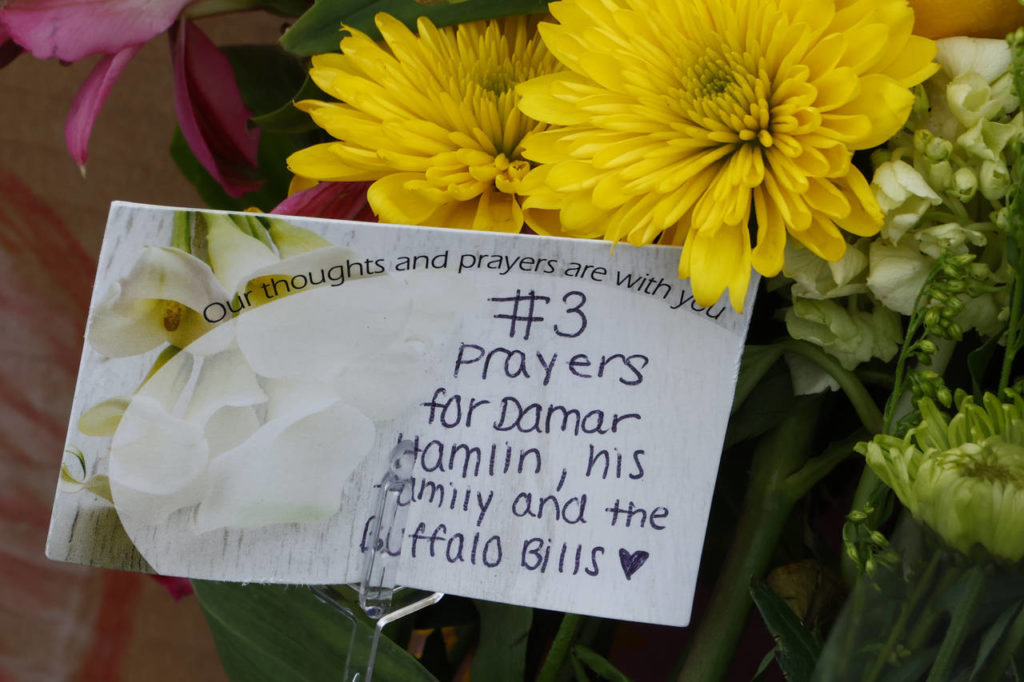 Our thoughts and prayers are with you
#3
Prayers
for Damar
Hamlin, his
family and the
Buffalo Bills ♥